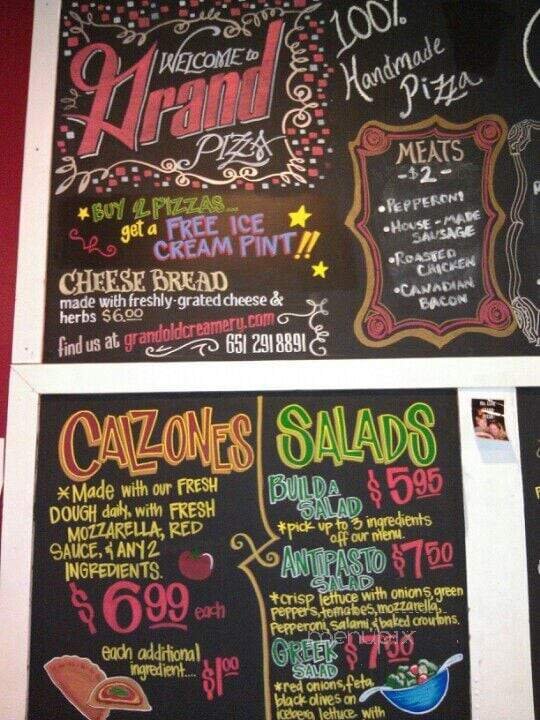 WELCOME to
Grand
PIZZA
100%
Handmade
Pizza
* BUY 2 PIZZAS...
get a FREE ICE
CREAM PINT!!
CHEESE BREAD
made with freshly-grated cheese &
herbs $6.00
find us at grandoldcreamery.com
651 291 8891
MEATS
-$2-
•PEPPERONI
•HOUSE-MADE
SAUSAGE
•ROASTED
CHICKEN
•CANADIAN
BACON
CALZONES
*Made with our FRESH
DOUGH daily, with FRESH
MOZZARELLA, RED
SAUCE, & ANY 2
INGREDIENTS.
$6.99 each
each additional
ingredient.... $1.00
SALADS
BUILD A
SALAD $5.95
*pick up to 3 ingredients
off our menu.
ANTIPASTO $7.50
SALAD
*crisp lettuce with onions, green
peppers, tomatoes, mozzarella,
pepperoni, salami, & baked croutons.
menupix
GREEK
SALAD
*red onions, feta,
black olives on
iceberg lettuce with